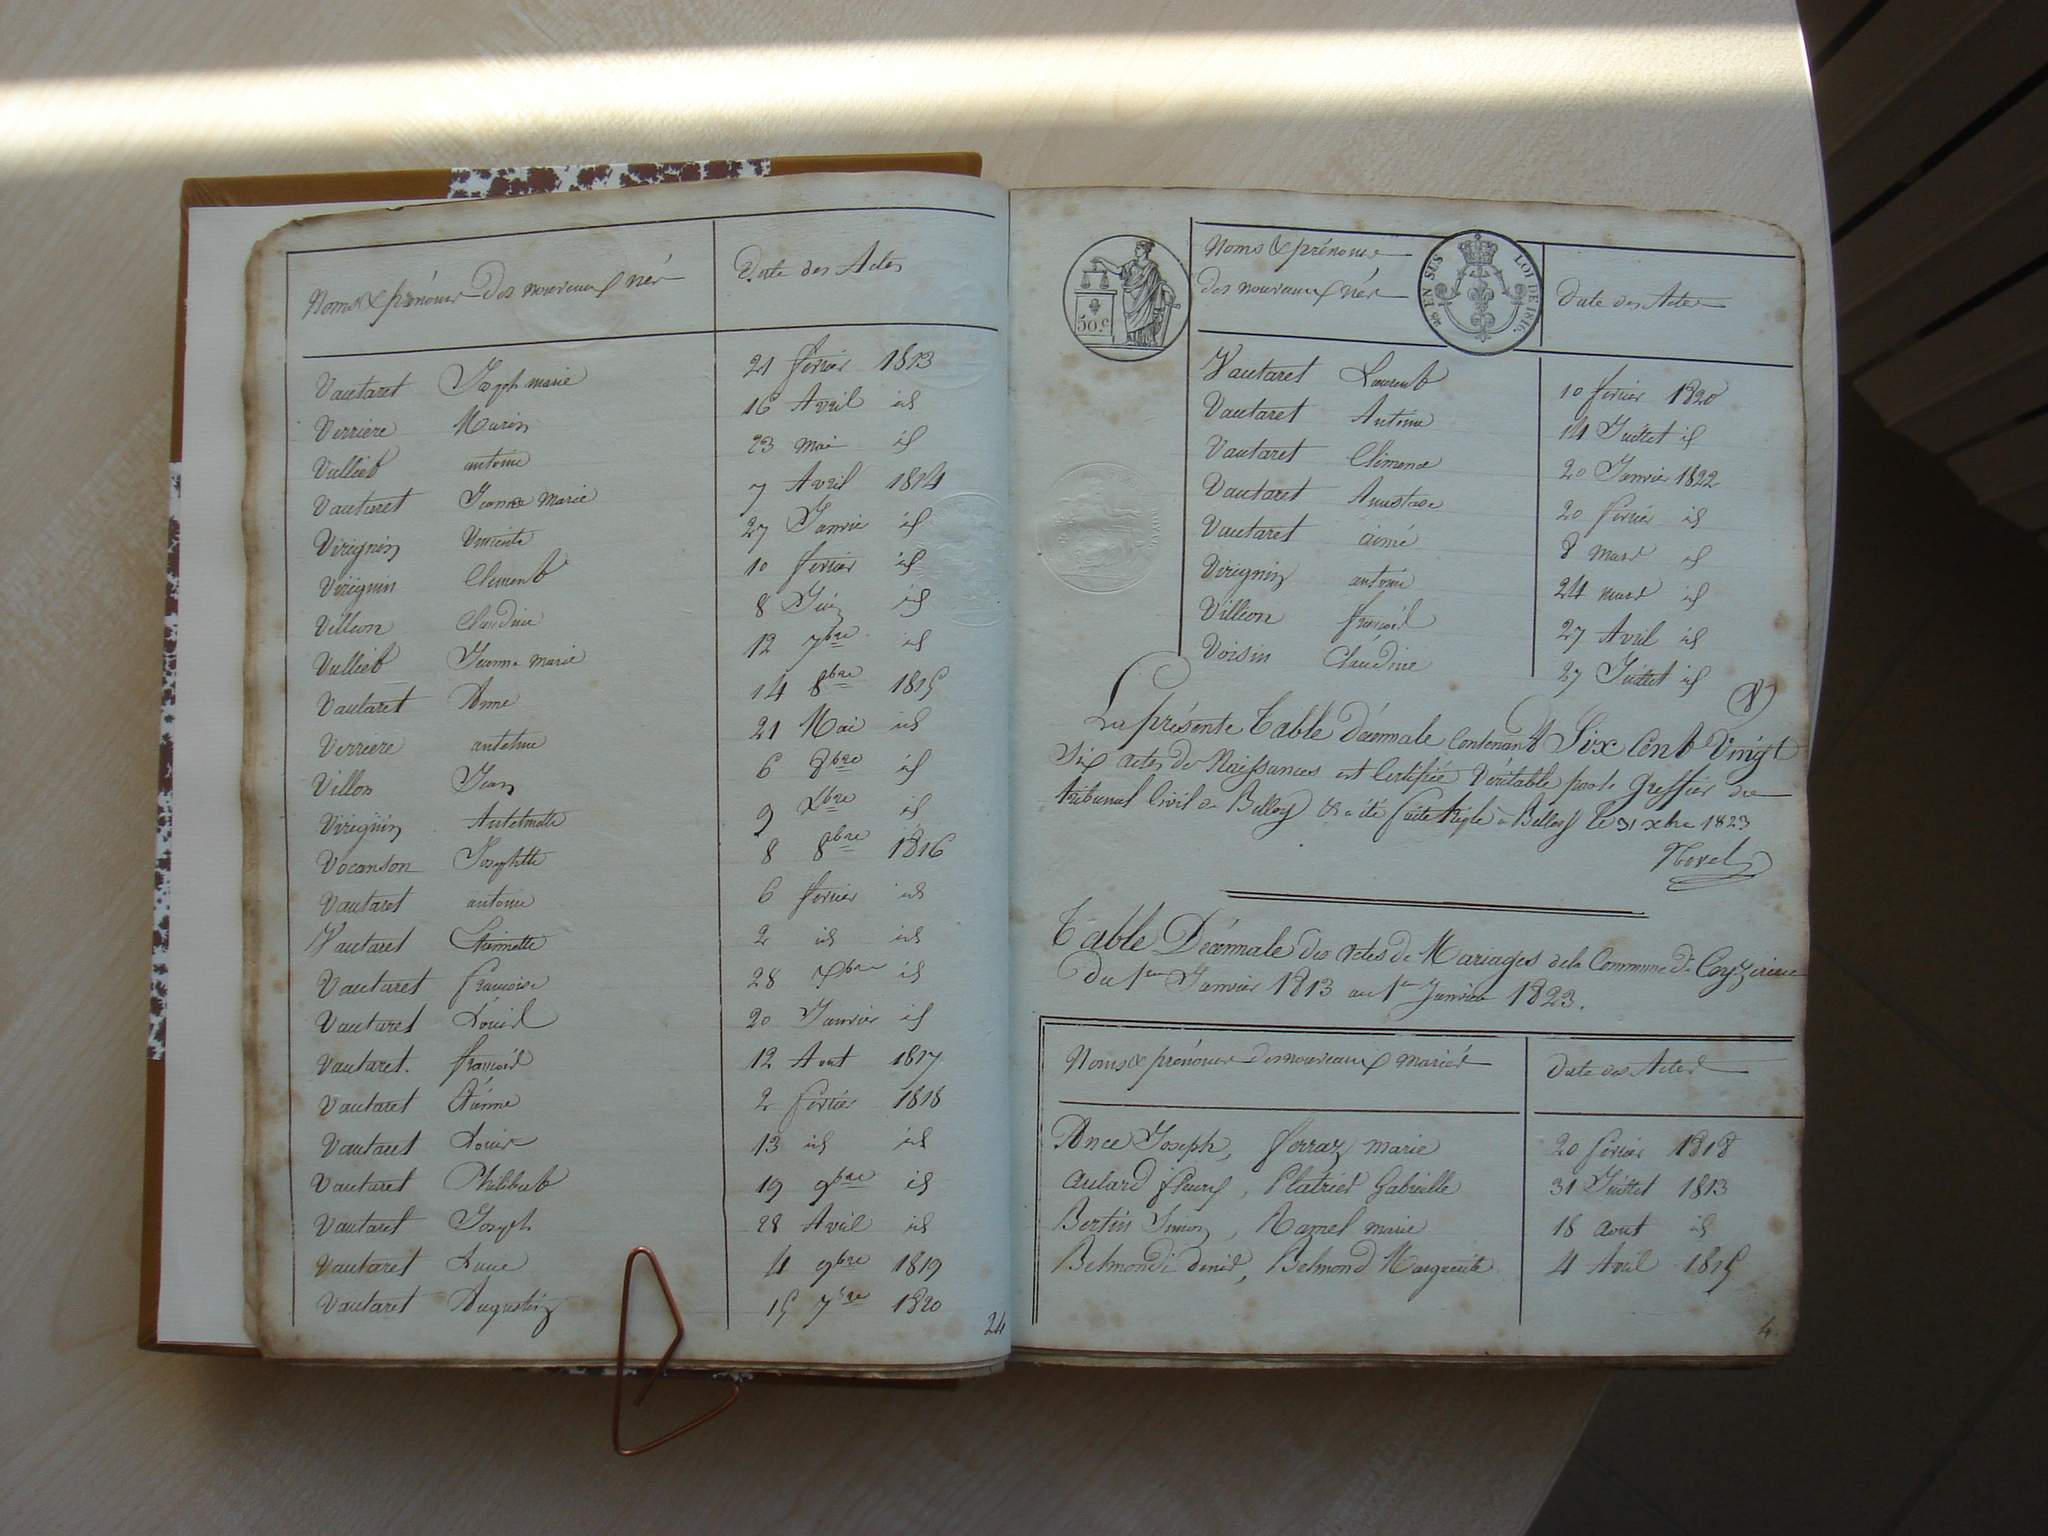 Noms & prénoms des nouveaux nés Date des Actes
Vautaret Joseph marie 21 fevrier 1813
Verriere Marin 16 Avril id
Vullieb antoine 23 mai id
Vautaret Jeanne Marie 7 Avril 1814
Virignin Vincente 27 Janvier id
Virignin Climent 10 fevrier id
Villeon Claudine 8 Juin id
Vullieb Jeanne marie 12 7bre id
Vautaret Anne 14 8bre 1815
Verriere antelme 21 Mai id
Villon Jean 6 8bre id
Virignin Antelmette 9 Xbre id
Vocanson Josephtte 8 8bre 1816
Vautaret antoine 6 fevrier id
Vautaret Etiennette 2 id id
Vautaret francoise 28 7bre id
Vautaret Louis 20 Janvier id
Vautaret francois 12 Aout 1817
Vautaret Etienne 2 fevrier 1818
Vautaret Louis 13 id id
Vautaret Philibert 19 9bre id
Vautaret Joseph 28 Avril id
Vautaret Lucie 4 9bre 1819
Vautaret Augustin 15 7bre 1820
24
50.c
EN SUS LOI DE 1816.
Noms & prénoms
des nouveaux nés Date des Actes
Vautaret Laurent 10 fevrier 1820
Vautaret Antoine 14 Juillet id
Vautaret Climence 20 Janvier 1822
Vautaret Anastase 20 fevrier id
Vautaret aimé 8 mars id
Virignin antoine 24 mars id
Villeon francois 27 Avril id
Voisin Claudine 27 Juillet id
La présente Table Décennale Contenant Six Cent Vingt
Six actes de Naissances est Certifiée Véritable par le Greffier du
tribunal Civil de Belley & a été faite triple à Belley le 31 xbre 1823
Morel
Table Décennale des Actes de Mariages de la Commune de Ceyzerieu
Du 1er Janvier 1813 au 1er Janvier 1823.
Noms & prénoms des nouveaux mariés Date des Actes
Ance Joseph, ferraz marie 20 fevrier 1818
Aulard fleury, Platrier Gabrielle 31 Juillet 1813
Bertin Simon, Ramel marie 18 aout id
Belmond denis, Belmond Marguerite 4 Avril 1815
4.